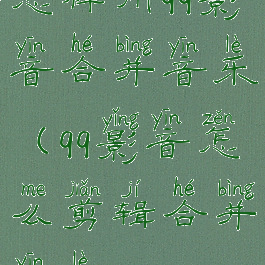 怎样 (qq影
yīn hé bìng yīn lè
音合并音乐
yǐng yīn zěn
(qq影音怎
me jiǎn jí hé bìng
么剪辑合并
yīn lè